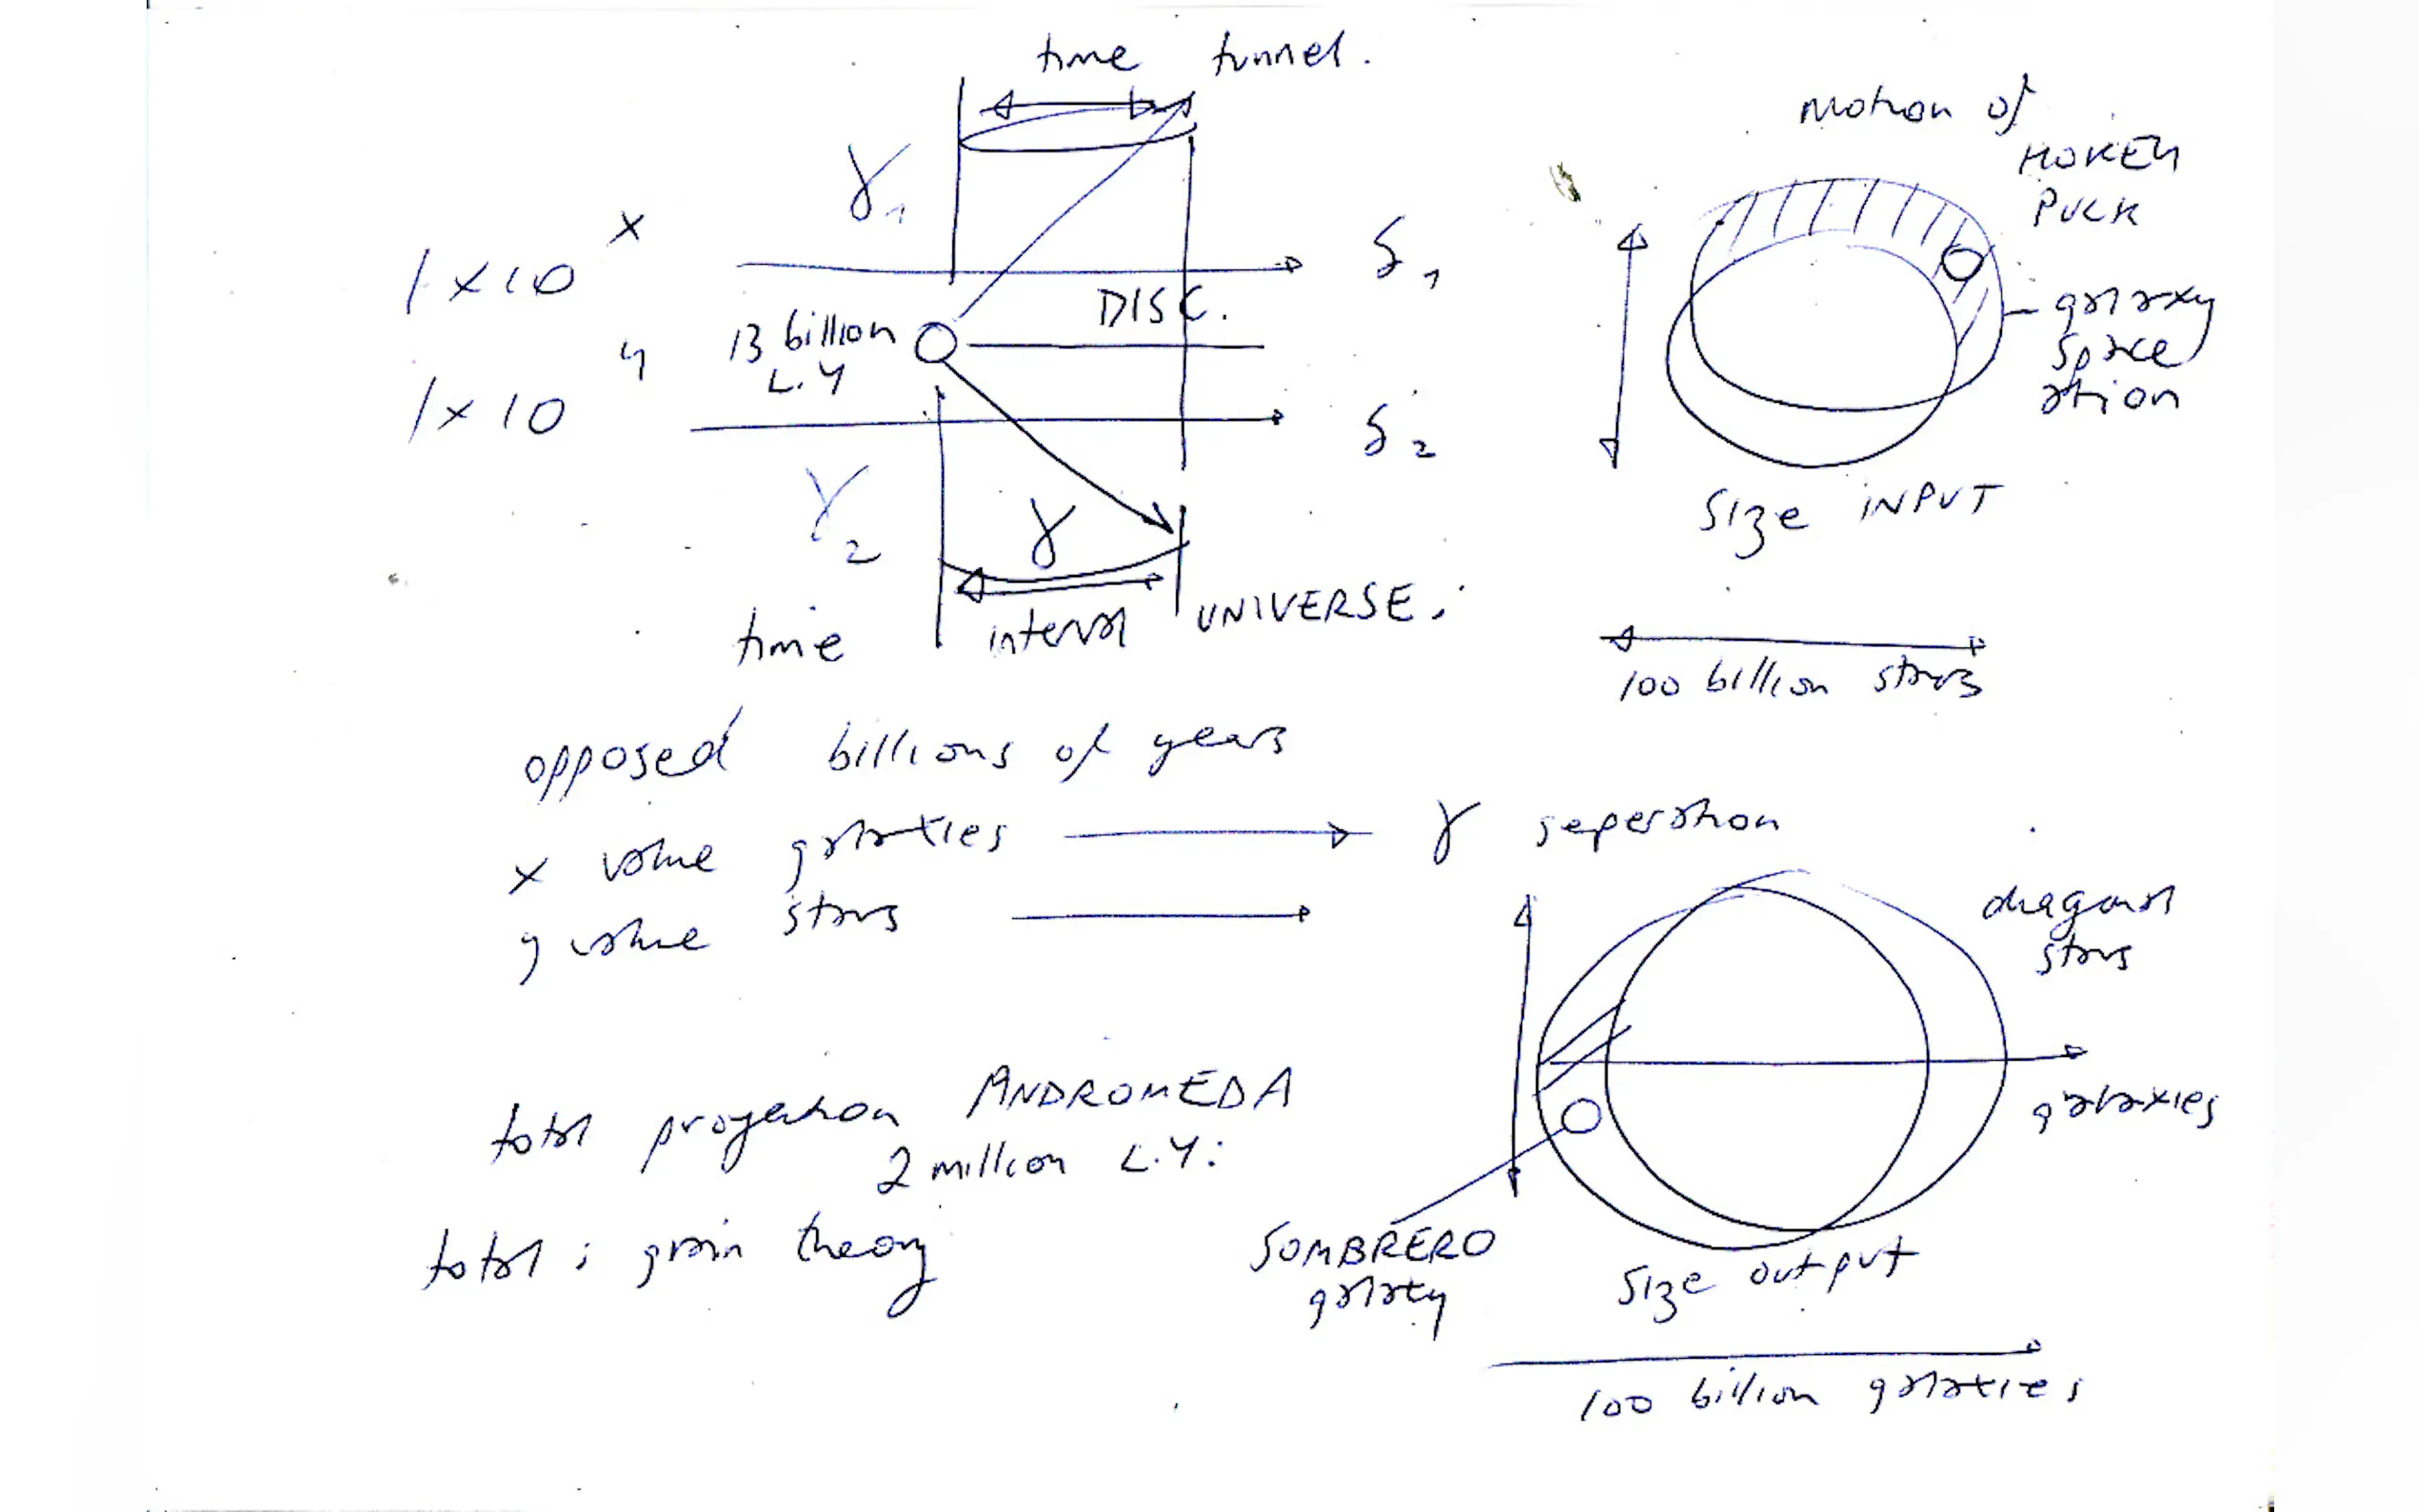 time tunnel.
motion of
HOKEY
PUCK
γ1
1 x 10^x
δ1
DISC.
galaxy
space
ation
13 billion
L.Y
1 x 10^y
δ2
γ2
γ
size INPUT
time interval UNIVERSE.
100 billion stars
opposed billions of years
x value galaxies → γ seperation
y value stars →
diagonal
stars
galaxies
total projection ANDROMEDA
2 million L.Y.
total; grain theory
SOMBRERO
galaxy
size output
100 billion galaxies